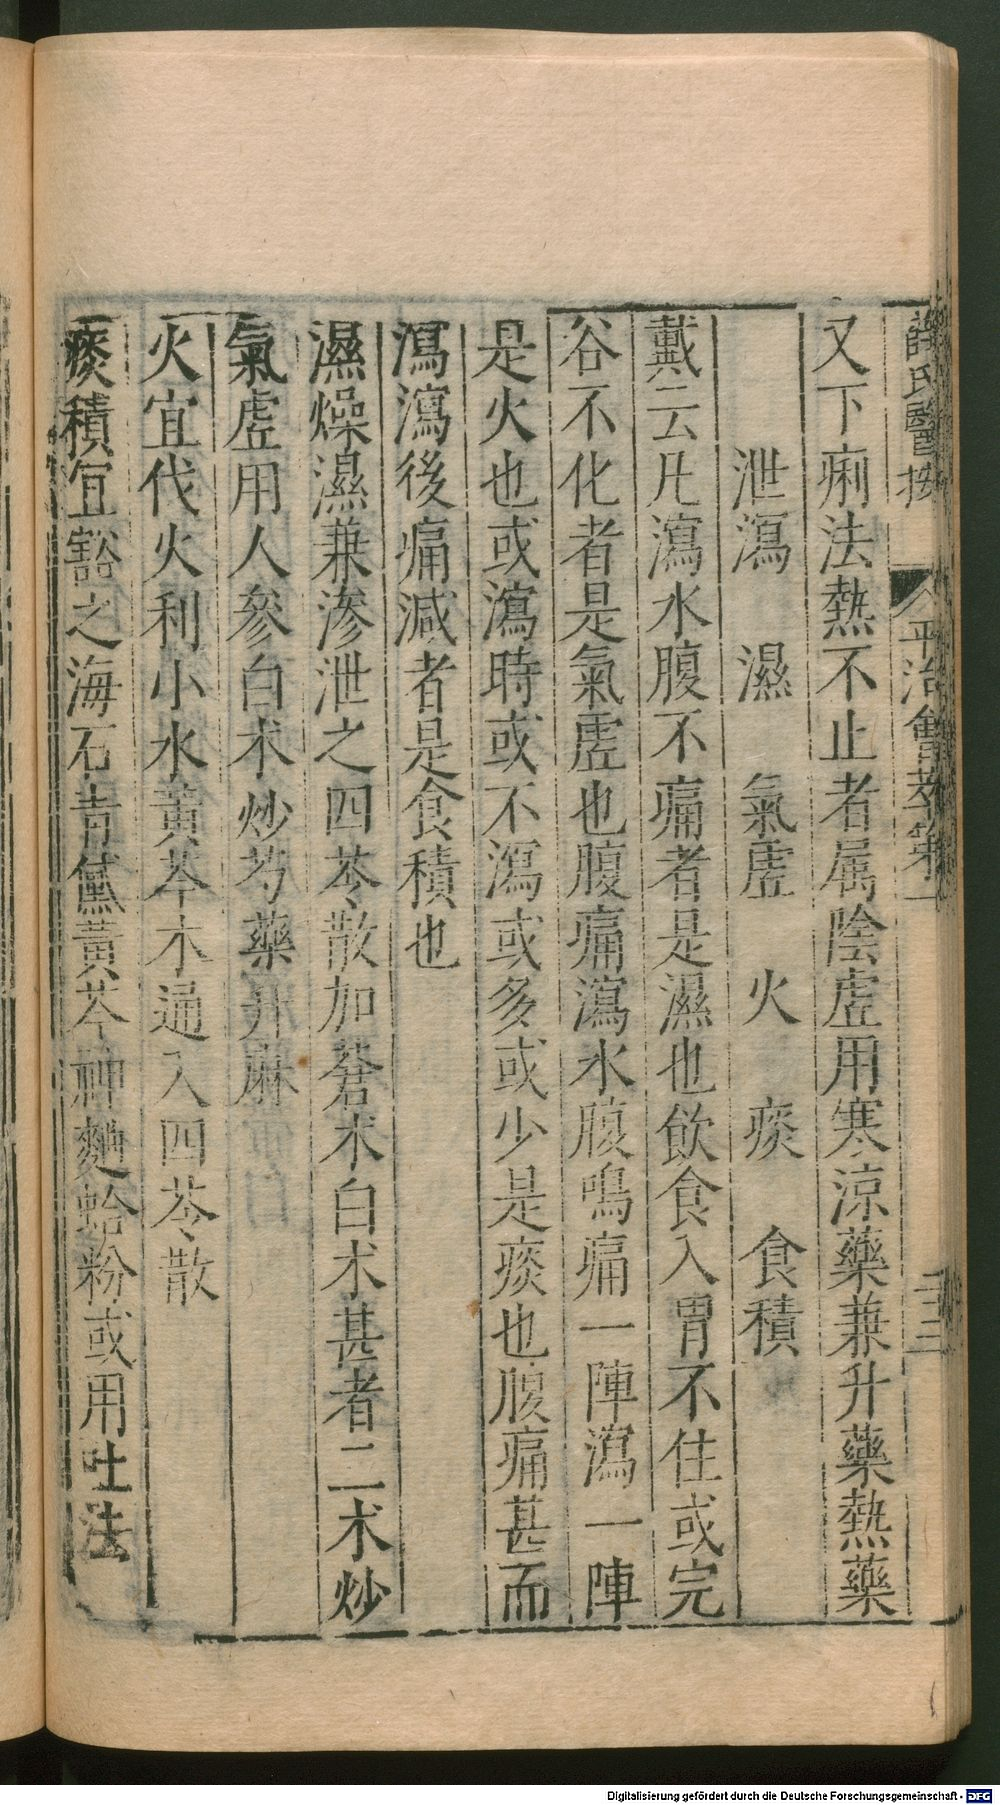 薛氏醫按
平治會萃卷一
二十三
又下痢法熱不止者属陰虛用寒涼藥兼升藥熱藥
泄瀉　濕　氣虛　火　痰　食積
戴云凡瀉水腹不痛者是濕也飲食入胃不住或完
谷不化者是氣虛也腹痛瀉水腹鳴痛一陣瀉一陣
是火也或瀉時或不瀉或多或少是痰也腹痛甚而
瀉瀉後痛減者是食積也
濕燥濕兼滲泄之四苓散加蒼术白术甚者二术炒
氣虛用人參白术炒芍藥升麻
火宜伐火利小水黃芩木通入四苓散
痰積宜豁之海石青黛黃芩神麯蛤粉或用吐法
Digitalisierung gefördert durch die Deutsche Forschungsgemeinschaft - DFG